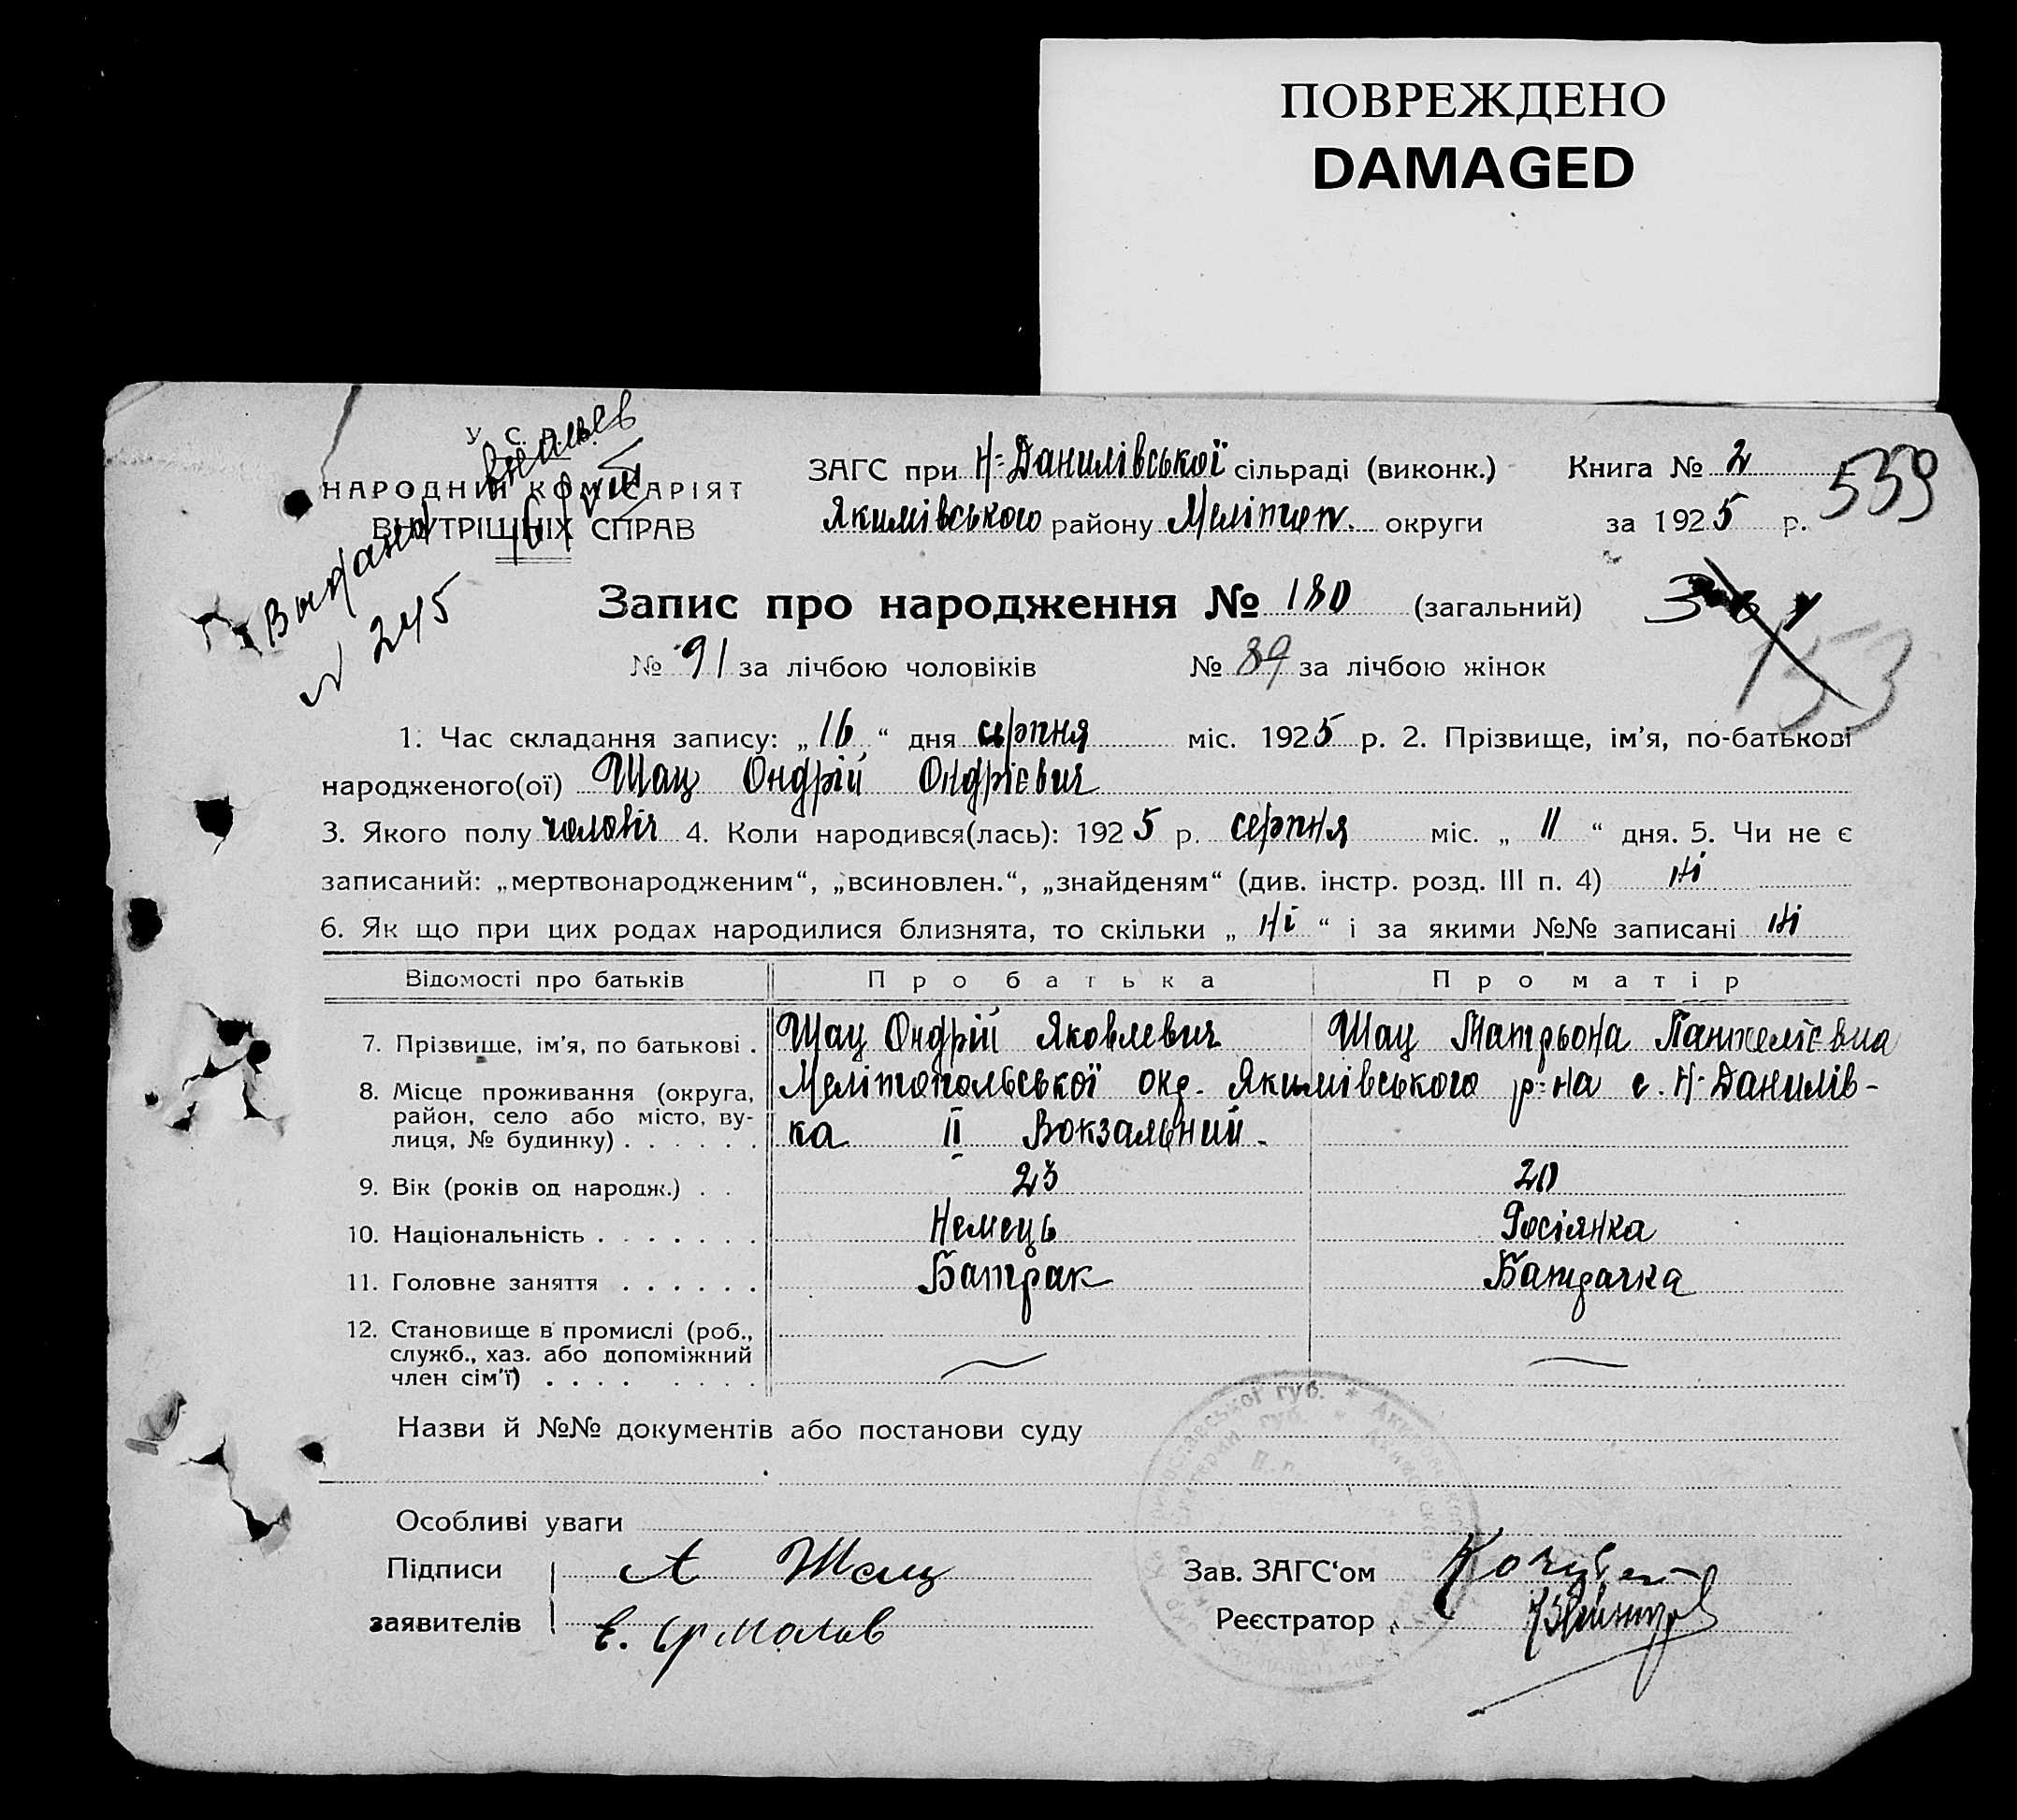 ПОВРЕЖДЕНО
DAMAGED
У. С.
НАРОДНИЙ КОМІСАРІЯТ
ВНУТРІШНІХ СПРАВ
Выдано
16/VIII
№ 245
ЗАГС при Н-Данилівської сільраді (виконк.) Книга № 2
559
Якимівського району Мелітоп. округи за 1925 р.
Запис про народження № 180 (загальний)
№ 91 за лічбою чоловіків № 89 за лічбою жінок
153
1. Час складання запису: „16“ дня серпня міс. 1925 р. 2. Прізвище, ім'я, по-батькові
народженого(ої) Шац Ондрій Ондрієвич
3. Якого полу чоловіч 4. Коли народився(лась): 1925 р. серпня міс. „11“ дня. 5. Чи не є
записаний: „мертвонародженим“, „всиновлен.“, „знайденям“ (див. інстр. розд. III п. 4) ні
6. Як що при цих родах народилися близнята, то скільки „ні“ і за якими №№ записані ні
Відомості про батьків Про батька Про матір
7. Прізвище, ім'я, по батькові . Шац Ондрій Яковлевич Шац Матрьона Пантелієвна
8. Місце проживання (округа, район, село або місто, вулиця, № будинку) . . . . . . Мелітопольської окр. Якимівського р-на с. Н-Данилів-
ка II Вокзальний.
9. Вік (років од народж.) . . 23 20
10. Національність . . . . . . . Немець Росіянка
11. Головне заняття . . . . . . Батрак Батрачка
12. Становище в промислі (роб.,
служб., хаз. або допоміжний
член сім'ї) . . . . . . . .
Назви й №№ документів або постанови суду
Особливі уваги
Підписи А Шац Зав. ЗАГС'ом
заявителів Е. Ермолов Реєстратор